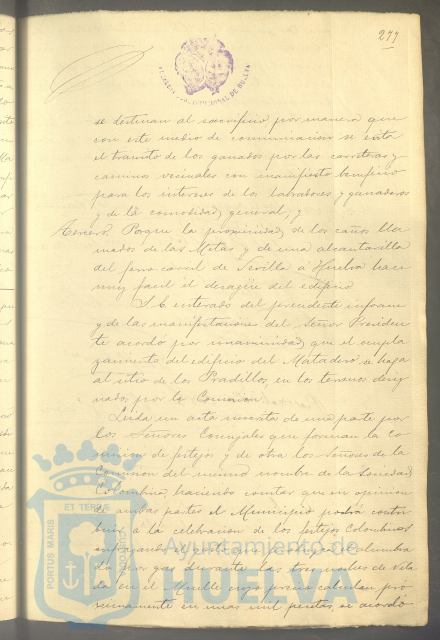 277
se destinan al sacrificio por manera que
con este medio de comunicacion se evita
el tránsito de los ganados por las carreteras y
caminos vecinales con manifiesto beneficio
para los intereses de los labradores y ganaderos
y de la comodidad general, y
Tercero. Porque la proximidad de los caños lla
mados de las Metas y de una alcantarilla
del ferro-carril de Sevilla á Huelva hace
muy facil el desagüe del edificio
S. E. enterado del precedente informe
y de las manifestaciones del Señor Presiden
te acordó por unanimidad que el empla
zamiento del edificio del Matadero se haga
al sitio de los Pradillos, en los terrenos desig
nados por la Comision.
Leida un acta suscrita de una parte por
los Señores Concejales que forman la Co
mision de festejos y de otra los Señores de la
Comision del mismo nombre de la Sociedad
Colombina, haciendo constar que en opinion
de ambas partes el Municipio podrá contri
buir á la celebracion de los festejos Colombinos
do por gas durante las tres noches de vela
da en el Muelle cuyo precio calculan pró
ximamente en unas mil pesetas, se acordó
PORTUS MARIS
ET TERRAE
CUSTODIA
Ayuntamiento de
HUELVA